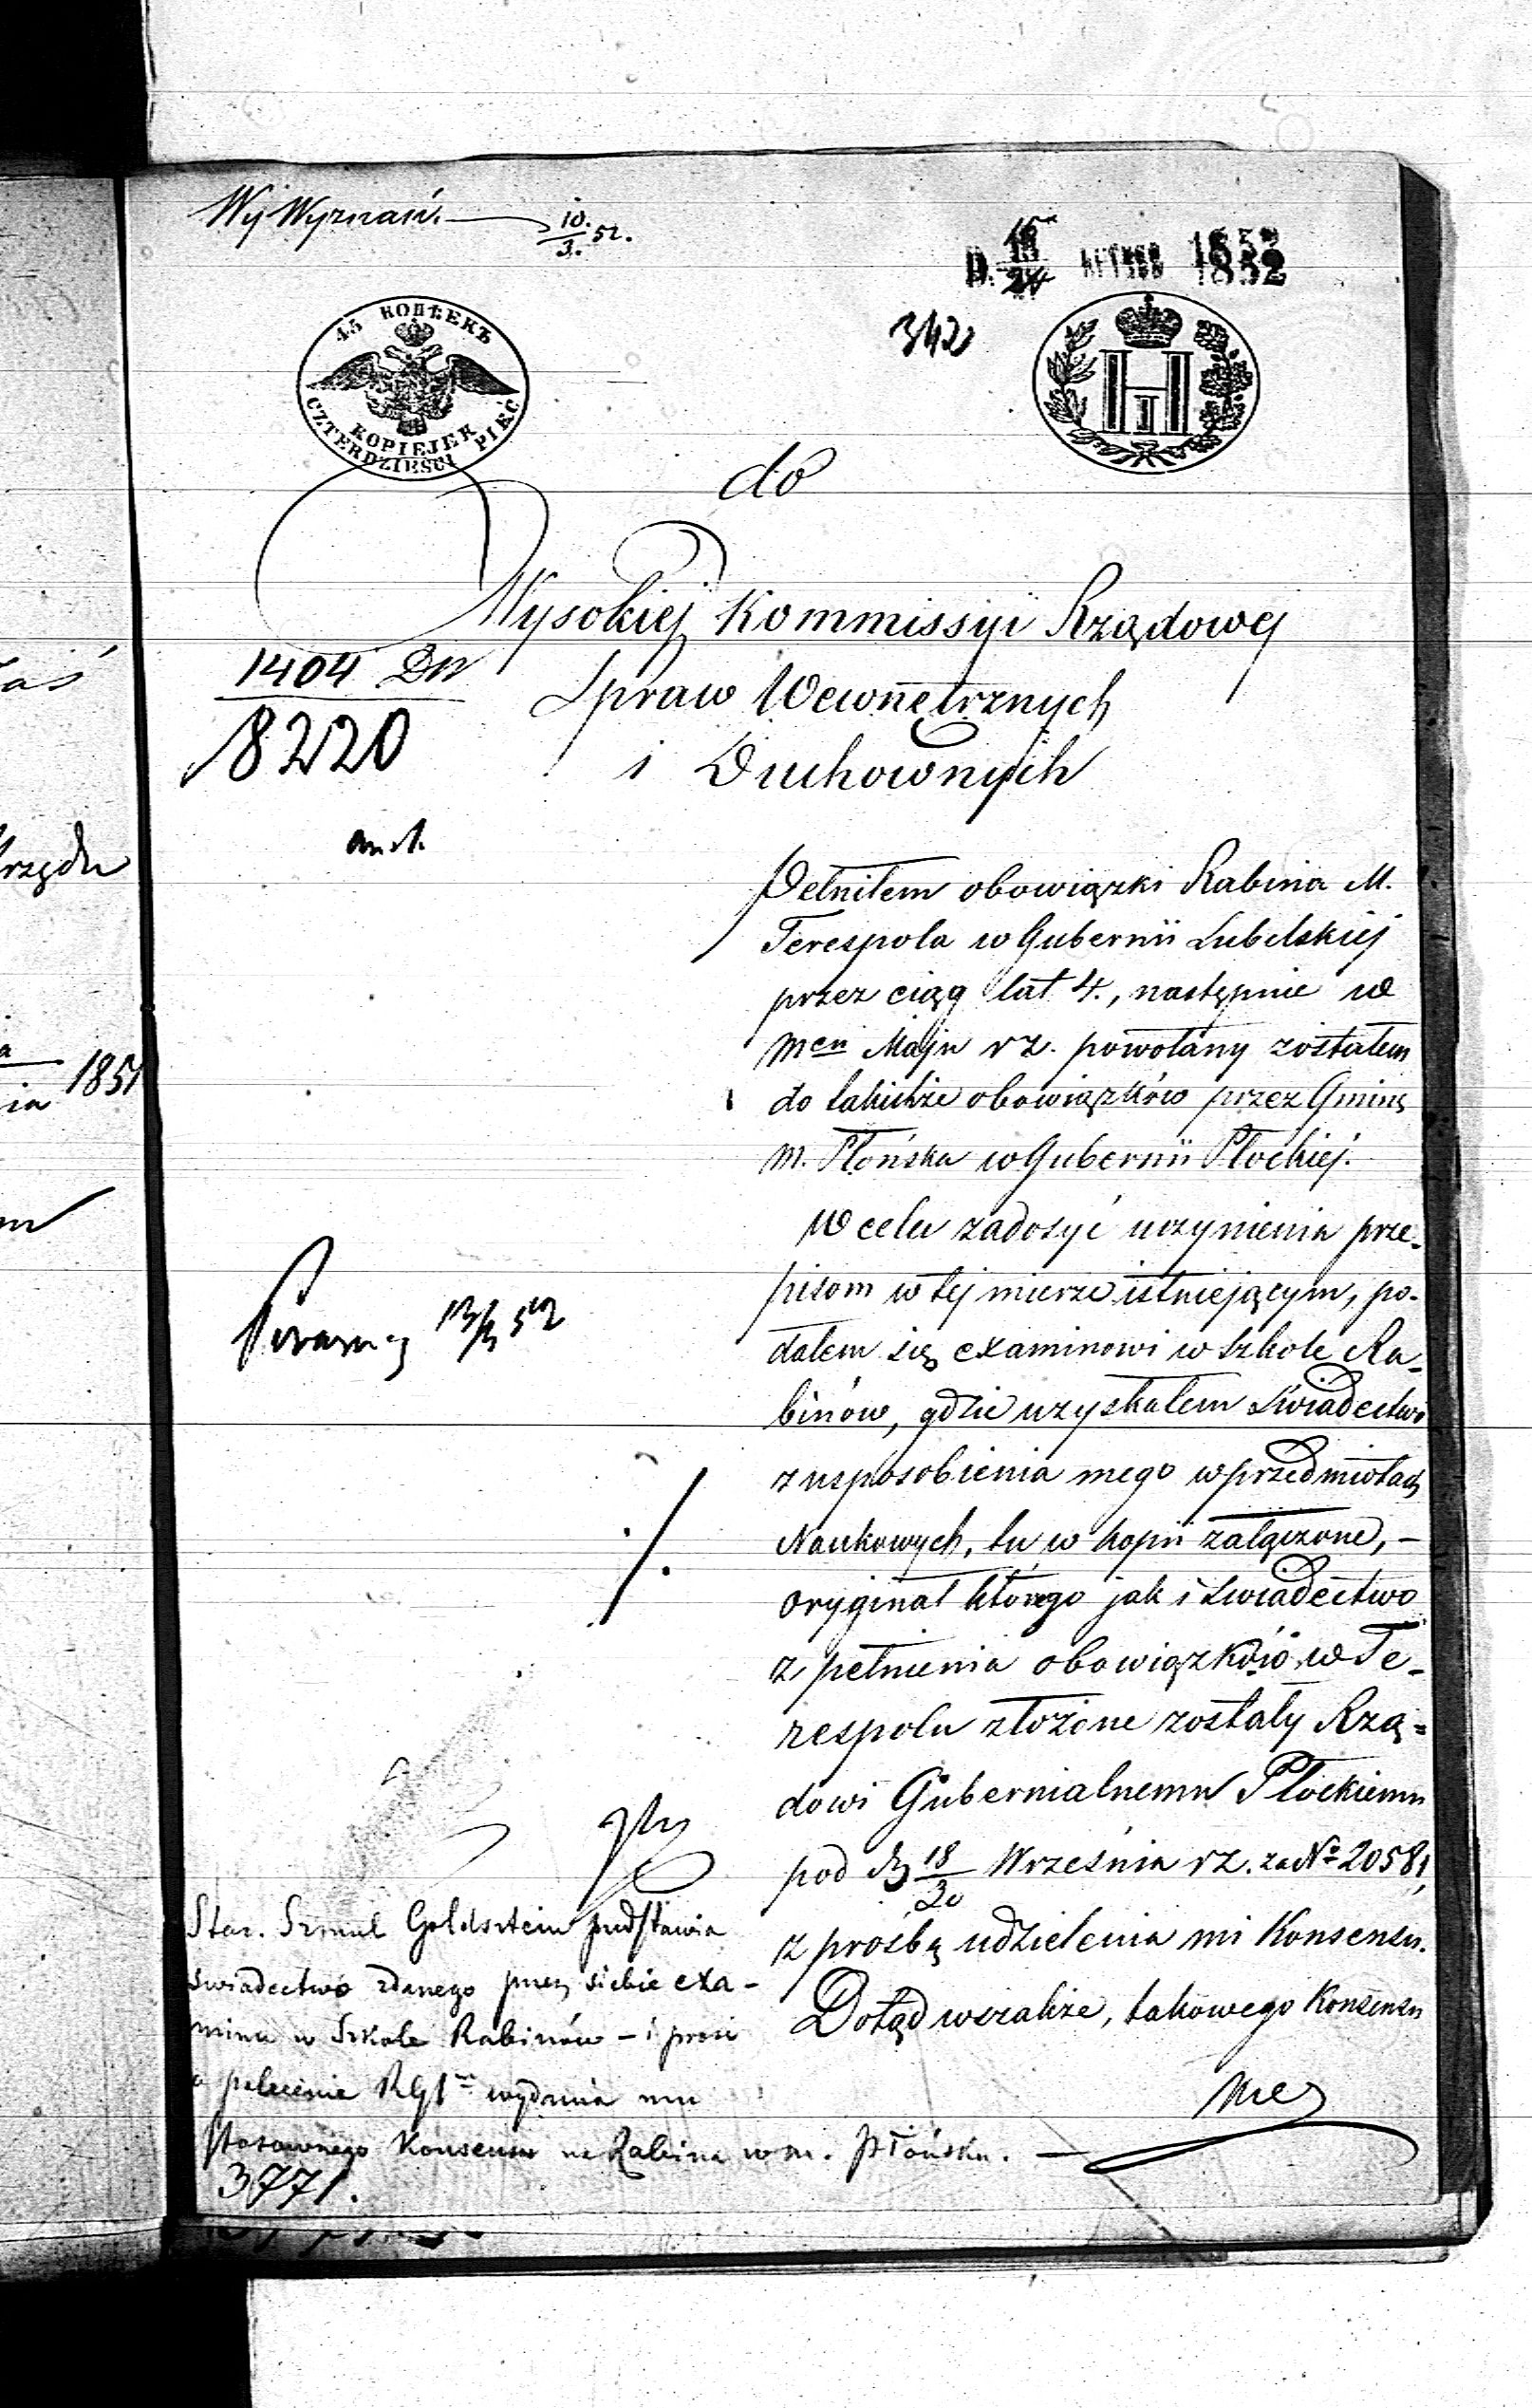 Wy Wyznań. 10./3. 52.
D. 1852
342
45 КОПѢЕКЪ
CZTERDZIEŚCI PIĘĆ
KOPIEJEK
H I
do
Wysokiej Kommissyi Rządowej
1404
Spraw Wewnętrznych
18220
i Duchownych
Pełniłem obowiązki Rabina M.
Terespola w Gubernii Lubelskiej
przez ciąg lat 4., następnie w
mcu Maju r z. powołany zostałem
do takichże obowiązków przez Gminę
m. Płońska w Gubernii Płockiej.
W celu zadosyć uczynienia prze-
pisom w tej mierze istniejącym, po-
dałem się examinowi w Szkole Ra-
binów, gdzie uzyskałem Świadectwo
z usposobienia mego w przedmiotach
Naukowych, tu w kopii załączone, –
oryginał którego jak i Świadectwo
z pełnienia obowiązków w Te-
respolu złożone zostały Rzą=
dowi Gubernialnemu Płockiemu
pod d. 18/30 Września r z. za No 20581,
z prośbą udzielenia mi Konsensu.
Dotąd wszakże, takowego Konsensu
nie
Star. Szmul Goldsztein przedstawia
świadectwo zdanego przez siebie exa-
minu w Szkole Rabinów – i prosi
o polecenie RGł wydania mu
stosownego Konsensu na Rabina w m. Płońsku. –
3771.
1851